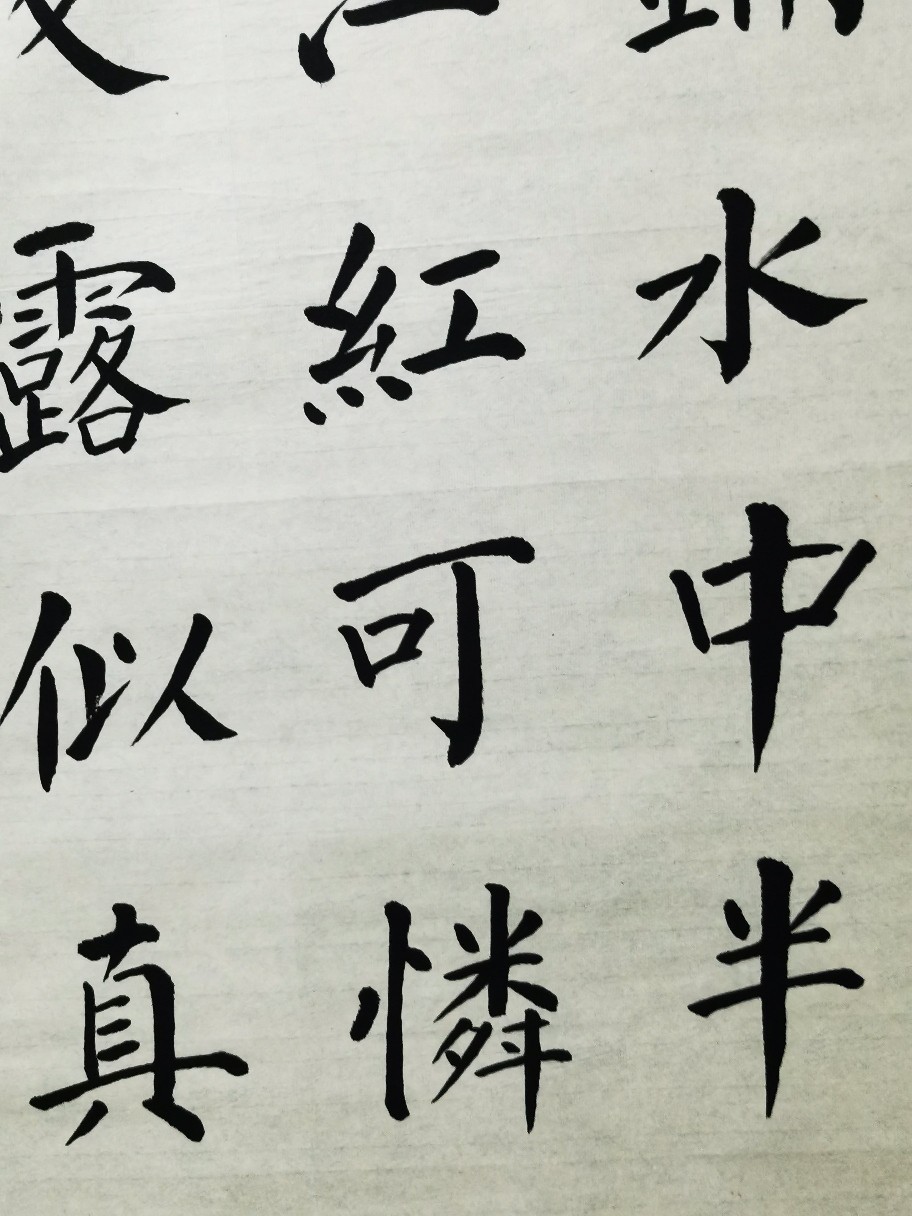 水中半
紅可憐
露似真